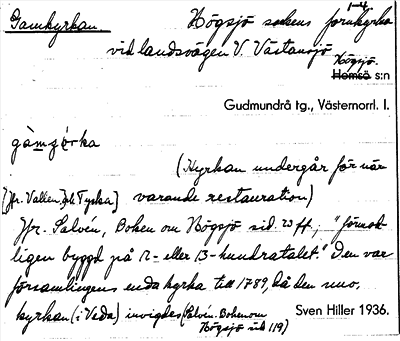 Gamkyrkan. Högsjö sokens fornkyrka
vid landsvägen V. Västansjö
Högsjö.
Hemsö s:n
Gudmundrå tg., Västernorrl. l.
gàmʒórka
(Kyrkan undergår för när
[Jfr. Vallen, Tyska] varande restauration)
Jfr. Salvén, Boken om Högsjö sid. 23 ff.; "förmod-
ligen byggd på 12- eller 13-hundratalet." Den var
församlingens enda kyrka till 1789, då den nuv.
kyrkan (i Veda) invigdes (Salvén. Boken om
Högsjö sid 119)
Sven Hiller 1936.